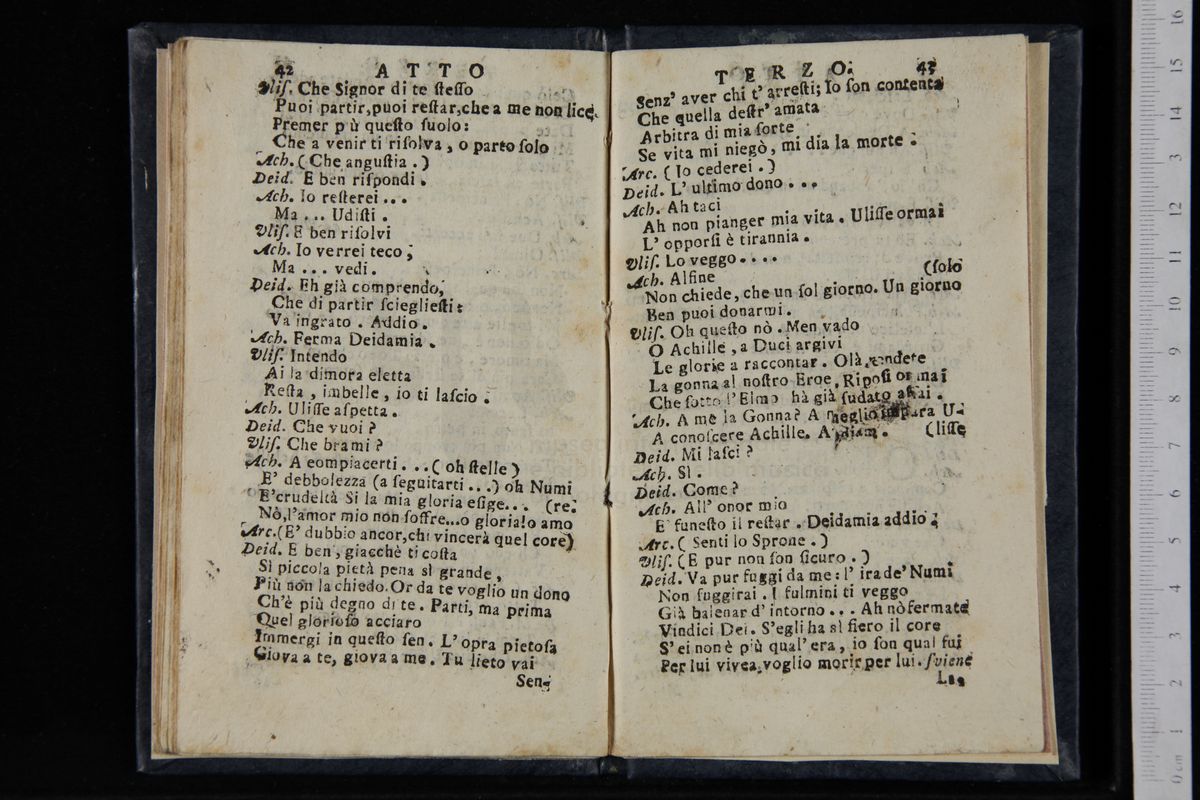 42 ATTO
Vliſ. Che Signor di te ſteſſo
Puoi partir, puoi reſtar, che a me non lice.
Premer più queſto ſuolo:
Che a venir ti riſolva, o parto ſolo
Ach. (Che anguſtia.)
Deid. E ben riſpondi.
Ach. Io reſterei...
Ma... Udiſti.
Vliſ. E ben riſolvi
Ach. Io verrei teco;
Ma... vedi.
Deid. Eh già comprendo,
Che di partir ſciegliesti:
Va ingrato. Addio.
Ach. Ferma Deidamia.
Vliſ. Intendo
Ai la dimora eletta
Reſta, imbelle, io ti laſcio.
Ach. Uliſſe aſpetta.
Deid. Che vuoi?
Vliſ. Che brami?
Ach. A eompiacerti...(oh ſtelle)
E' debbolezza (a ſeguitarti...) oh Numi
E' crudeltà Sì la mia gloria eſige... (re:
Nò, l'amor mio non ſoffre...o gloria! o amo
Arc. (E' dubbio ancor, chi vincerà quel core)
Deid. E ben, giacchè ti coſta
Sì piccola pietà pena sì grande,
Più non la chiedo. Or da te voglio un dono
Ch'è più degno di te. Parti, ma prima
Quel glorioſo acciaro
Immergi in queſto ſen. L'opra pietoſa
Giova a te, giova a me. Tu lieto vai
Sen-
TERZO. 43
Senz' aver chi t' arreſti; Io ſon contenta
Che quella deſtr' amata
Arbitra di mia ſorte
Se vita mi niegò, mi dia la morte.
Arc. (Io cederei.)
Deid. L' ultimo dono...
Ach. Ah taci
Ah non pianger mia vita. Uliſſe ormai
L' opporſi è tirannia.
Vliſ. Lo veggo....
Ach. Alfine (ſolo
Non chiede, che un ſol giorno. Un giorno
Ben puoi donarmi.
Vliſ. Oh queſto nò. Men vado
O Achille, a Duci argivi
Le glorie a raccontar. Olà, rendete
La gonna al noſtro Eroe, Ripoſi ormai
Che ſotto l'Elmo hà già ſudato aſſai.
Ach. A me la Gonna? A meglio impara U-
A conoſcere Achille. Andiam. (liſſe
Deid. Mi laſci?
Ach. Sì.
Deid. Come?
Ach. All' onor mio
E' funeſto il reſtar. Deidamia addio.
Arc. (Sentì lo Sprone.)
Vliſ. (E pur non ſon ſicuro.)
Deid. Va pur fuggi da me: l' ira de' Numi
Non fuggirai. I fulmini ti veggo
Già balenar d' intorno... Ah nò fermate
Vindici Dei. S'egli ha sì fiero il core
S' ei non è più qual' era, io ſon qual fui
Per lui vivea, voglio morir per lui. ſviene